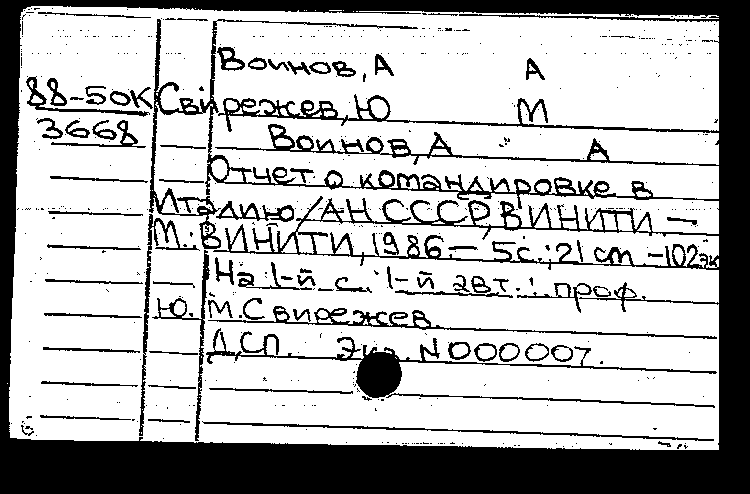 Воинов, А А
88-50К Свирежев, Ю М
3668
Воинов, А А
Отчет о командировке в
Италию / АН СССР, ВИНИТИ. —
М.: ВИНИТИ, 1986. — 5 с.; 21 cm. - 102 эк
На 1-й с. 1-й авт.: проф.
Ю. М. Свирежев.
ДСП. Экз. N 000007.
6